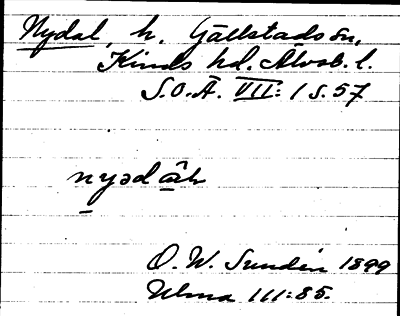 Nydal, h. Gällstads sn,
Kinds hd. Älvsb. l.
S.O.Ä. VII:1 s. 57
O. W. Sundén 1899
Ulma 111:85.